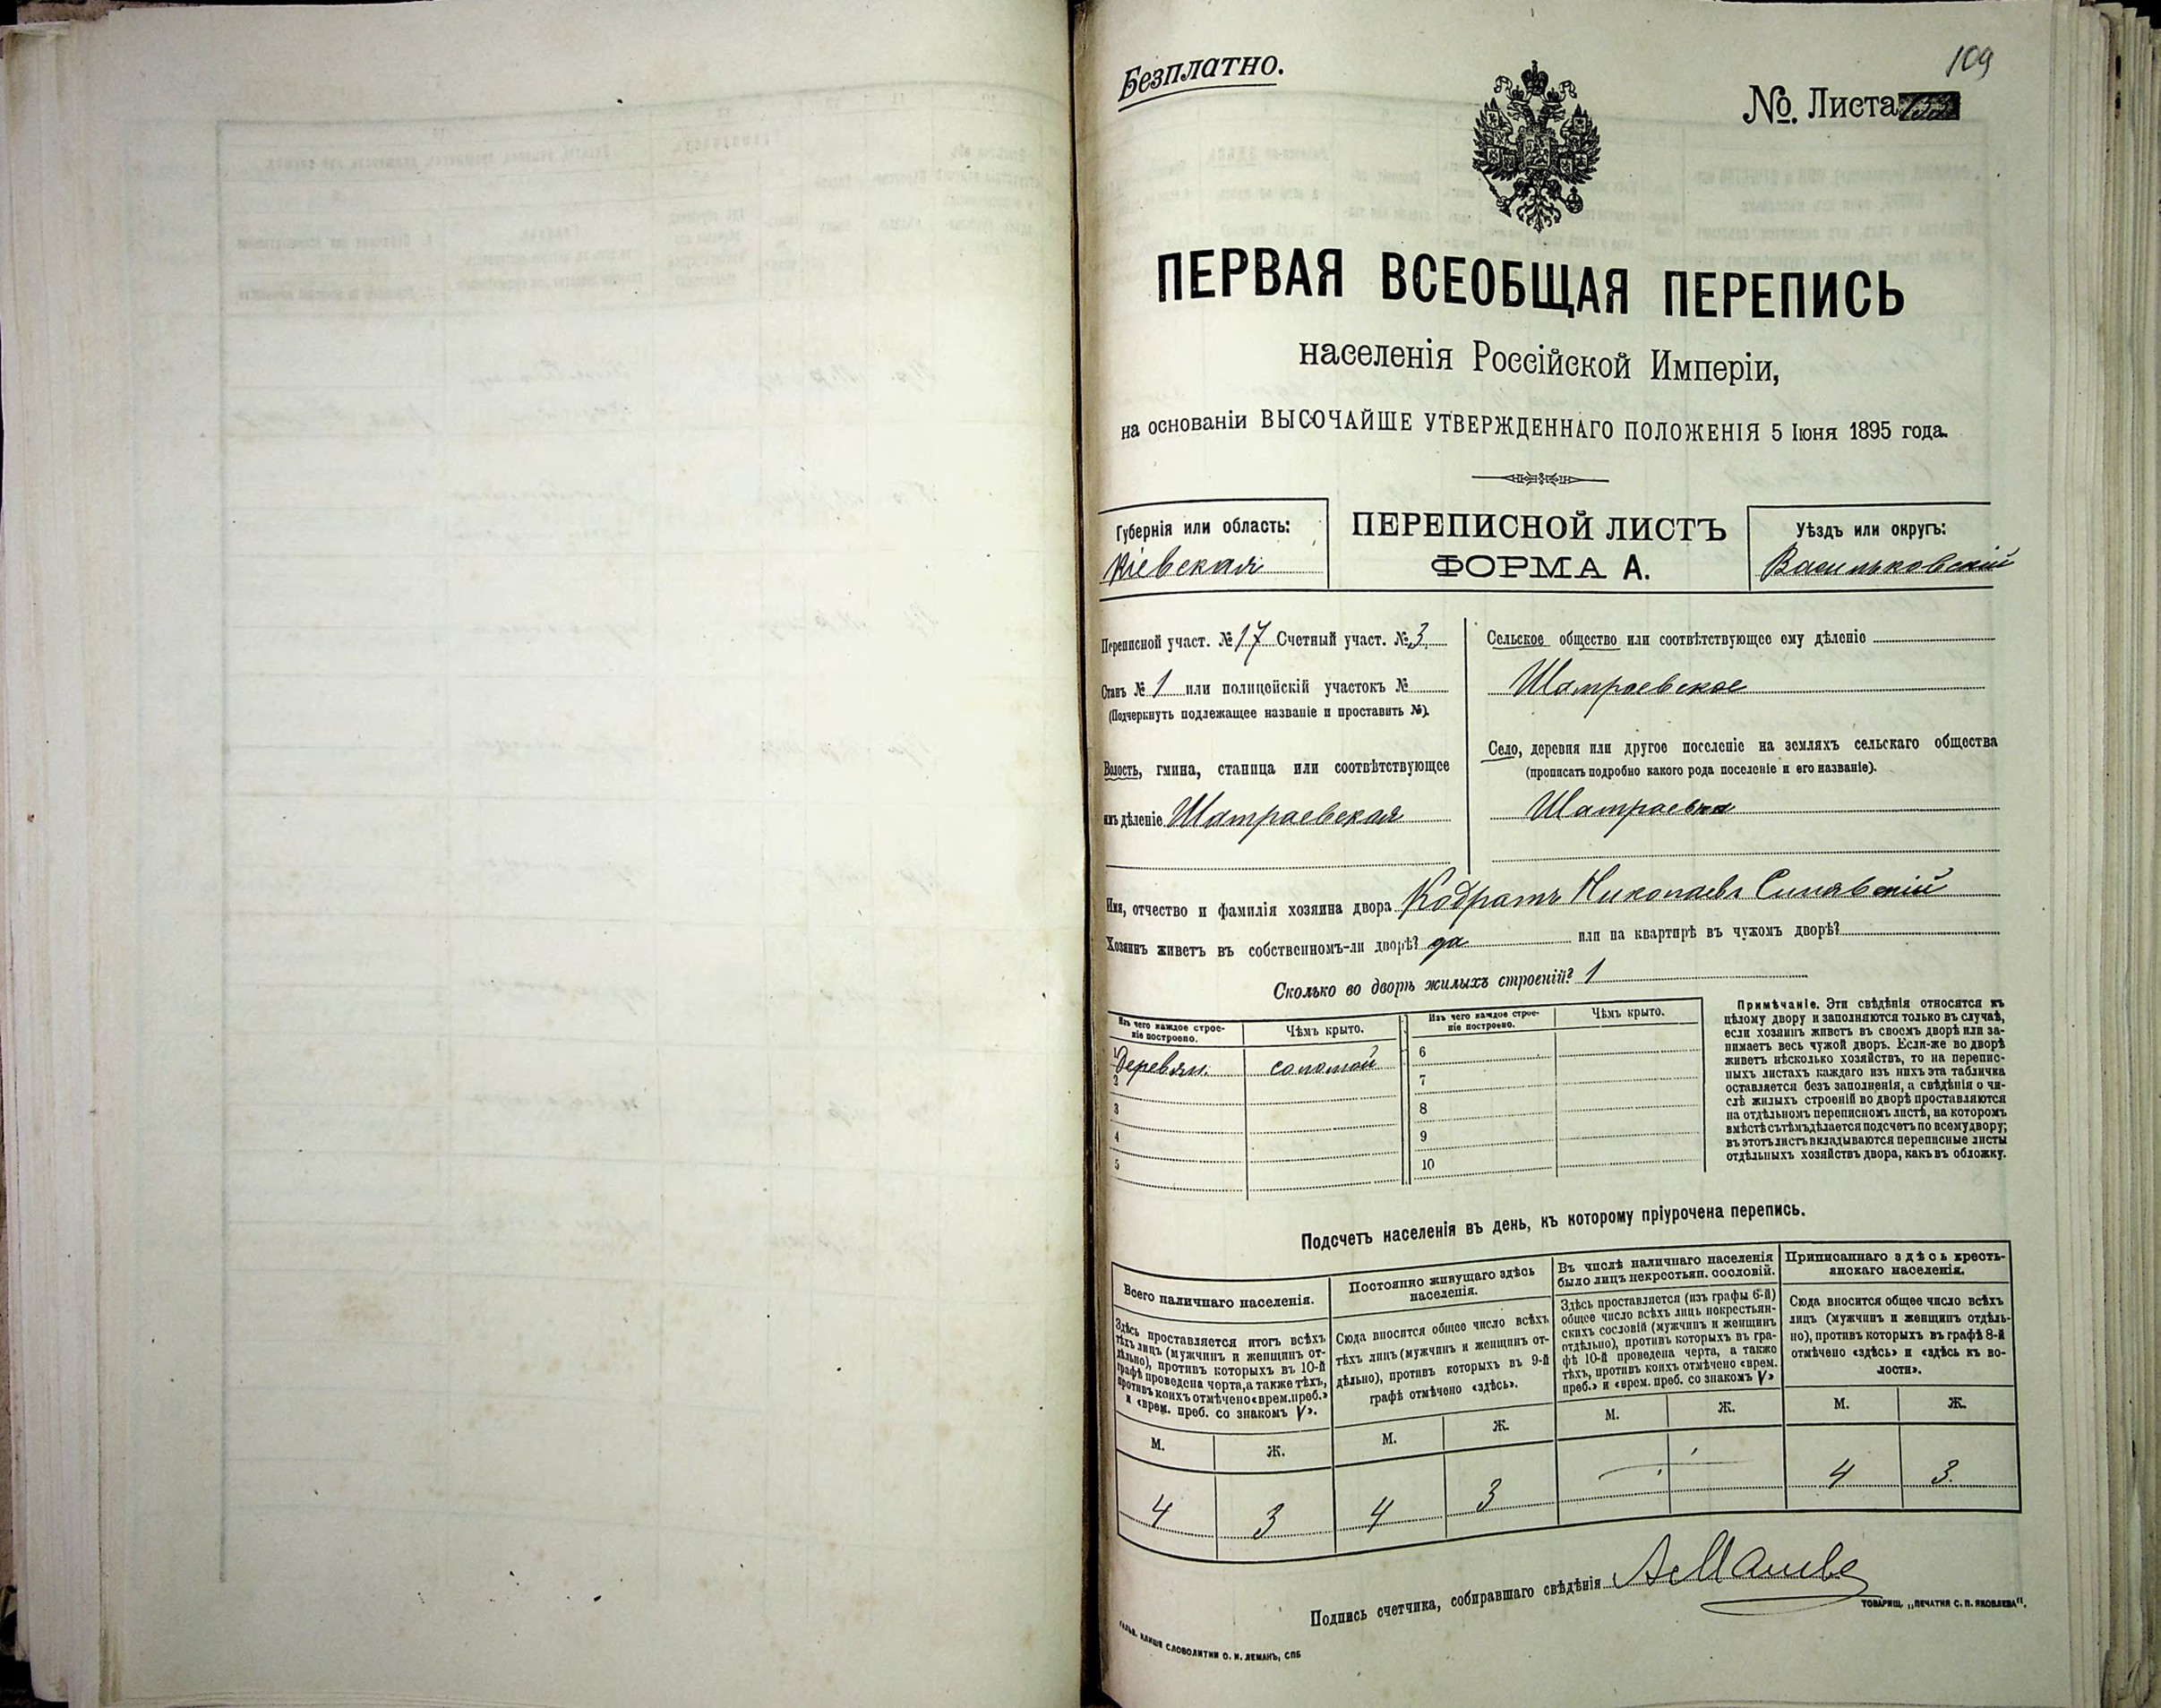 109
Безплатно.
№. Листа
ПЕРВАЯ ВСЕОБЩАЯ ПЕРЕПИСЬ
населенія Россійской Имперіи,
на основаніи ВЫСОЧАЙШЕ УТВЕРЖДЕННАГО ПОЛОЖЕНІЯ 5 Іюня 1895 года.
Губернія или область:
Кіевская
ПЕРЕПИСНОЙ ЛИСТЪ
ФОРМА А.
Уѣздъ или округъ:
Васильковскій
Переписной участ. № 17 Счетный участ. № 3
Станъ № 1 или полицейскій участокъ №
(Подчеркнуть подлежащее названіе и проставить №).
Волость, гмина, станица или соотвѣтствующее
имъ дѣленіе Шамраевская
Сельское общество или соотвѣтствующее ему дѣленіе
Шамраевское
Село, деревня или другое поселеніе на земляхъ сельскаго общества
(прописать подробно какого рода поселеніе и его названіе).
Шамраевка
Имя, отчество и фамилія хозяина двора Кодратъ Николаевъ Синявскій
Хозяинъ живетъ въ собственномъ-ли дворѣ? да или на квартирѣ въ чужомъ дворѣ?
Сколько во дворѣ жилыхъ строеній? 1
Изъ чего каждое строе-
ніе построено.
Чѣмъ крыто.
Изъ чего каждое строе-
ніе построено.
Чѣмъ крыто.
1 Деревян. соломой
2
3
4
5
6
7
8
9
10
Примѣчаніе. Эти свѣдѣнія относятся къ
цѣлому двору и заполняются только въ случаѣ,
если хозяинъ живетъ въ своемъ дворѣ или за-
нимаетъ весь чужой дворъ. Если-же во дворѣ
живетъ нѣсколько хозяйствъ, то на перепис-
ныхъ листахъ каждаго изъ нихъ эта табличка
оставляется безъ заполненія, а свѣдѣнія о чи-
слѣ жилыхъ строеній во дворѣ проставляются
на отдѣльномъ переписномъ листѣ, на которомъ
вмѣстѣ съ тѣмъ дѣлается подсчетъ по всему двору;
въ этотъ листъ вкладываются переписные листы
отдѣльныхъ хозяйствъ двора, какъ въ обложку.
Подсчетъ населенія въ день, къ которому пріурочена перепись.
Всего наличнаго населенія.
Здѣсь проставляется итогъ всѣхъ
тѣхъ лицъ (мужчинъ и женщинъ от-
дѣльно), противъ которыхъ въ 10-й
графѣ проведена черта, а также тѣхъ,
противъ коихъ отмѣчено «врем. преб.»
и «врем. преб. со знакомъ V».
М. Ж.
4 3
Постоянно живущаго здѣсь
населенія.
Сюда вносится общее число всѣхъ
тѣхъ лицъ (мужчинъ и женщинъ от-
дѣльно), противъ которыхъ въ 9-й
графѣ отмѣчено «здѣсь».
М. Ж.
4 3
Въ числѣ наличнаго населенія
было лицъ некрестьян. сословій.
Здѣсь проставляется (изъ графы 6-й)
общее число всѣхъ лицъ некрестьян-
скихъ сословій (мужчинъ и женщинъ
отдѣльно), противъ которыхъ въ гра-
фѣ 10-й проведена черта, а также
тѣхъ, противъ коихъ отмѣчено «врем.
преб.» и «врем. преб. со знакомъ V»
М. Ж.
Приписаннаго здѣсь кресть-
янскаго населенія.
Сюда вносится общее число всѣхъ
лицъ (мужчинъ и женщинъ отдѣль-
но), противъ которыхъ въ графѣ 8-й
отмѣчено «здѣсь» и «здѣсь къ во-
лости».
М. Ж.
4 3.
Подпись счетчика, собиравшаго свѣдѣнія
ТОВАРИЩ. „ПЕЧАТНЯ С. П. ЯКОВЛЕВА".
ГАЛЬВ. КЛИШЕ СЛОВОЛИТНИ О. И. ЛЕМАНЪ, СПБ